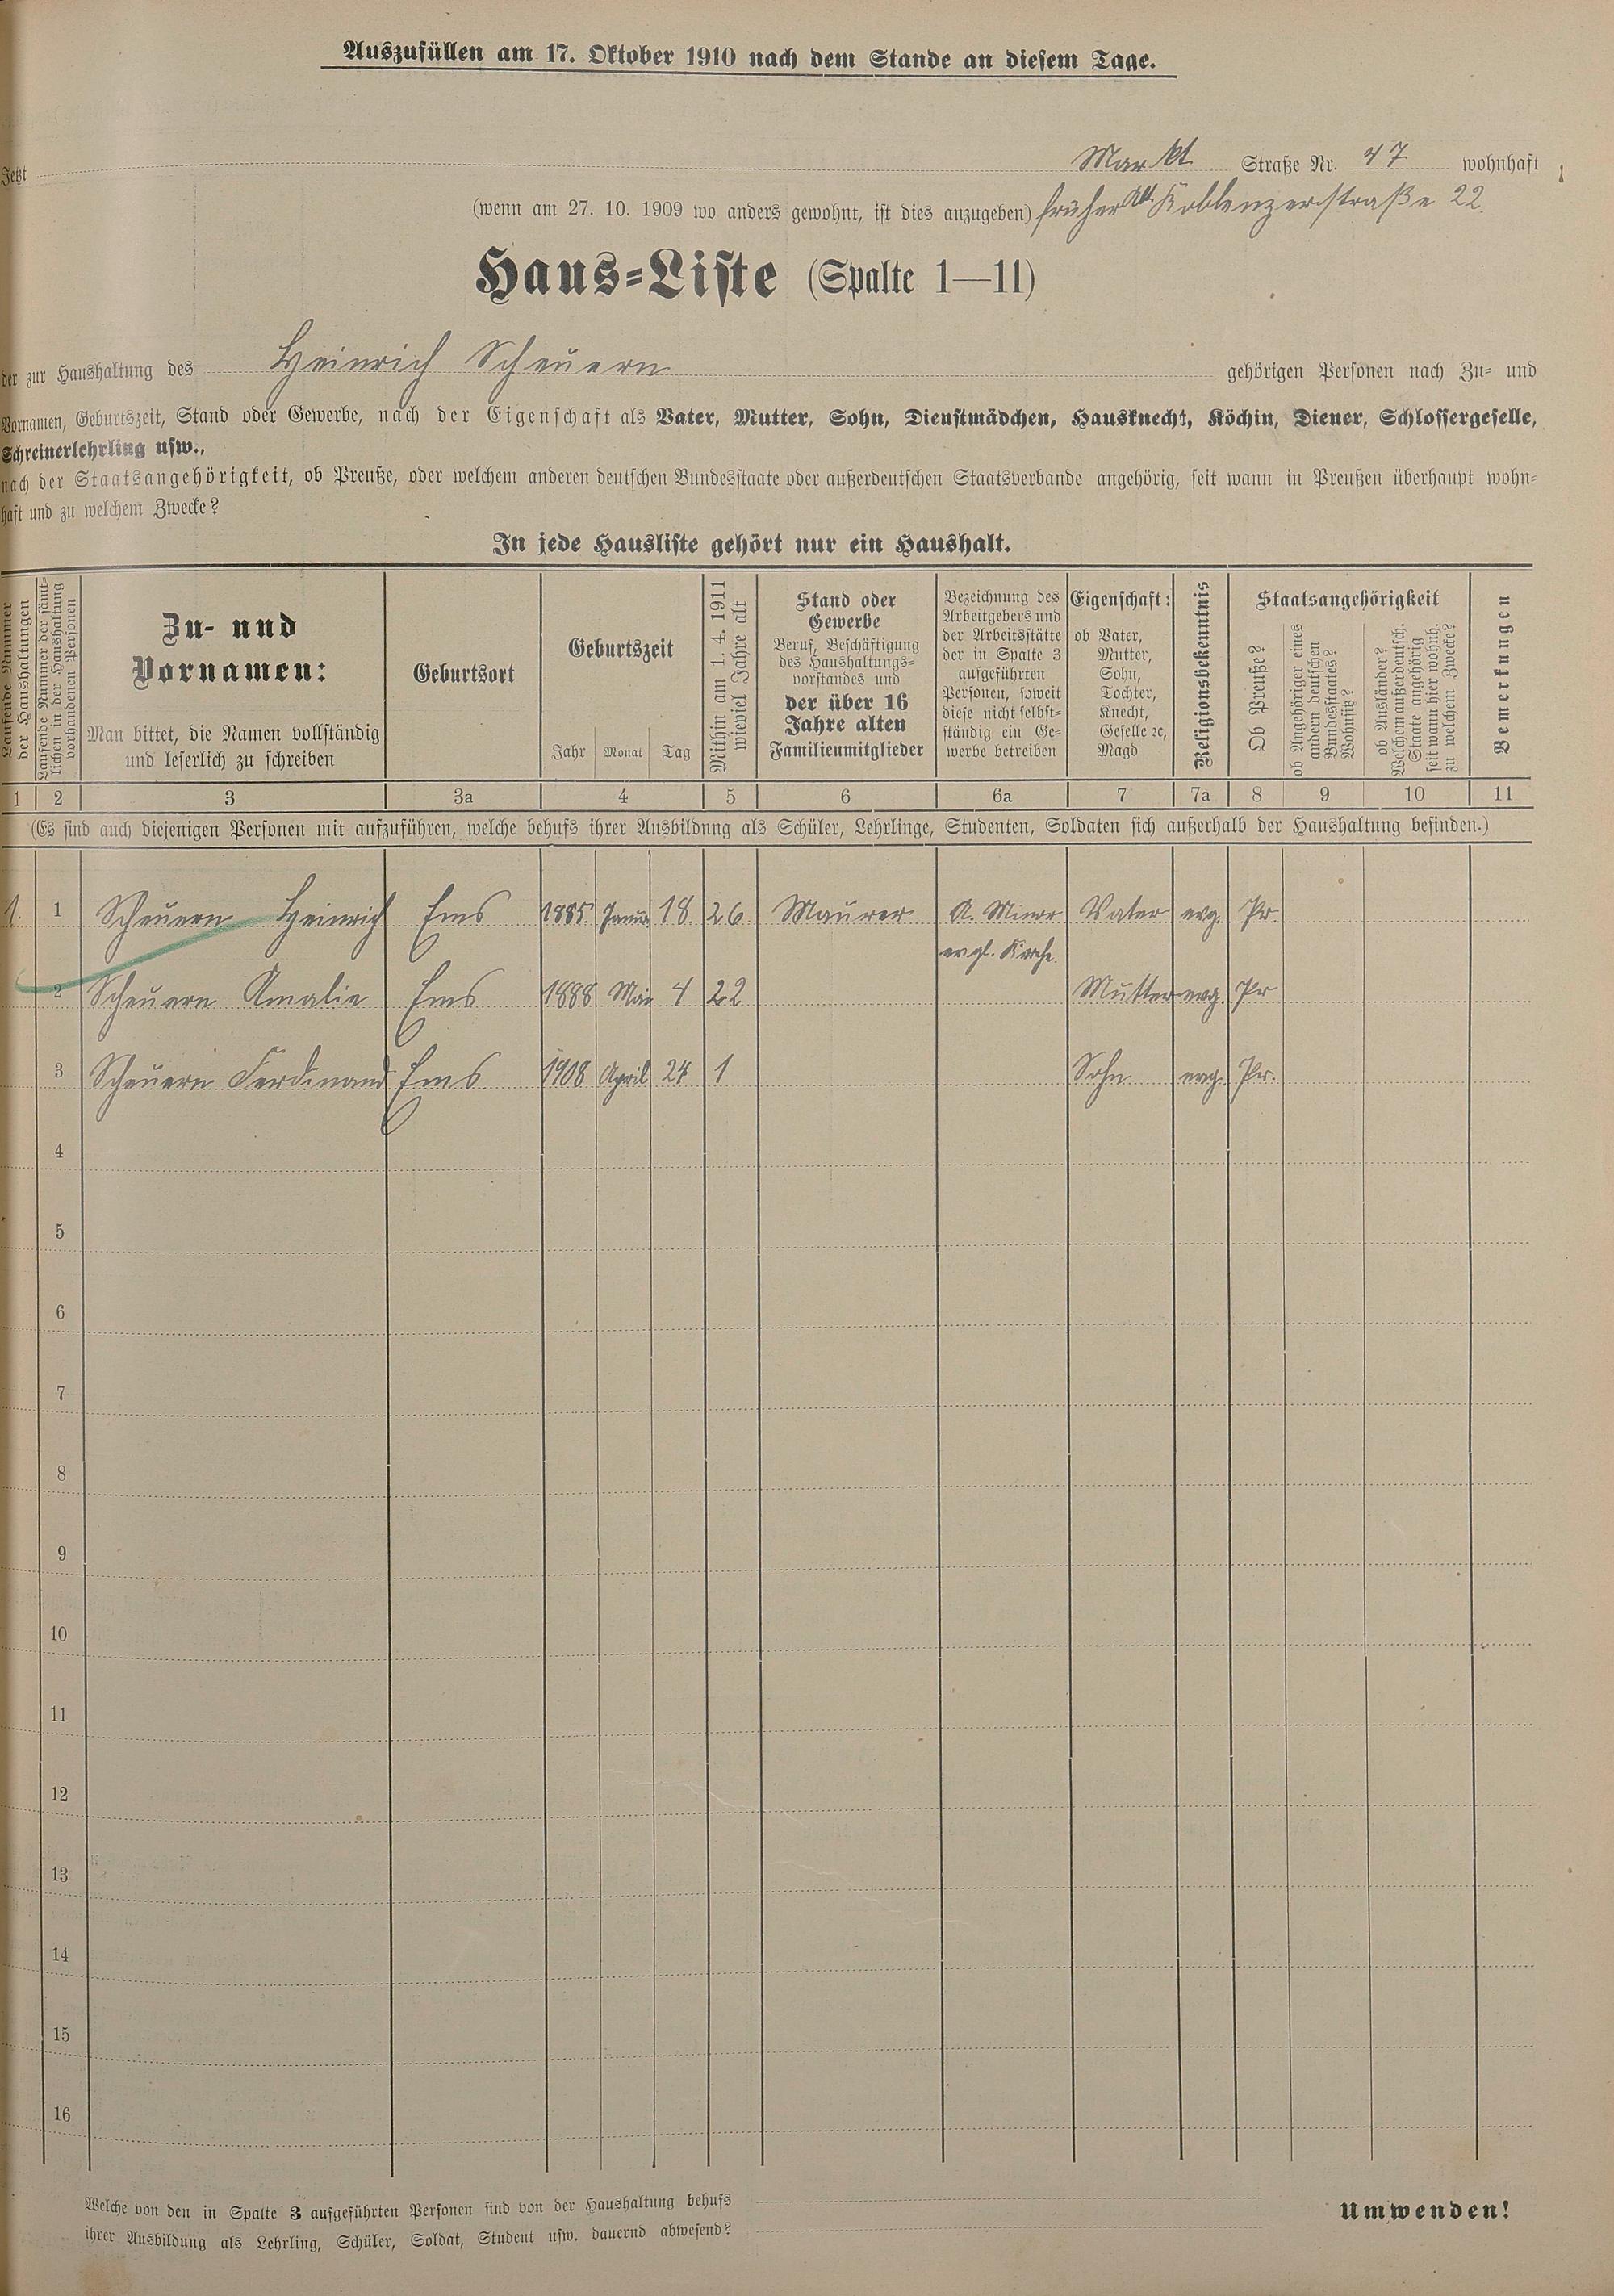 Auszufüllen am 17. Oktober 1910 nach dem Stande an diesem Tage.
Jetzt Markt Straße Nr. 47 wohnhaft
(wenn am 27. 10. 1909 wo anders gewohnt, ist dies anzugeben) früher Koblenzerstraße 22.
Haus-Liste (Spalte 1—11)
der zur Haushaltung des Heinrich Scheuern gehörigen Personen nach Zu- und
Vornamen, Geburtszeit, Stand oder Gewerbe, nach der Eigenschaft als Vater, Mutter, Sohn, Dienstmädchen, Hausknecht, Köchin, Diener, Schlossergeselle,
Schreinerlehrling usw.,
nach der Staatsangehörigkeit, ob Preuße, oder welchem anderen deutschen Bundesstaate oder außerdeutschen Staatsverbande angehörig, seit wann in Preußen überhaupt wohn-
haft und zu welchem Zwecke?
In jede Hausliste gehört nur ein Haushalt.
Laufende Nummer
der Haushaltungen
Laufende Nummer der sämt-
lichen in der Haushaltung
vorhandenen Personen
Zu- und
Vornamen:
Man bittet, die Namen vollständig
und leserlich zu schreiben
Geburtsort
Geburtszeit
Jahr Monat Tag
Mithin am 1. 4. 1911
wieviel Jahre alt
Stand oder
Gewerbe
Beruf, Beschäftigung
des Haushaltungs-
vorstandes und
der über 16
Jahre alten
Familienmitglieder
Bezeichnung des
Arbeitgebers und
der Arbeitsstätte
der in Spalte 3
aufgeführten
Personen, soweit
diese nicht selbst-
ständig ein Ge-
werbe betreiben
Eigenschaft:
ob Vater,
Mutter,
Sohn,
Tochter,
Knecht,
Geselle ec,
Magd
Religionsbekenntnis
Staatsangehörigkeit
Ob Preuße?
ob Angehöriger eines
andern deutschen
Bundesstaates?
Wohnsitz?
ob Ausländer?
Welchem außerdeutsch.
Staate angehörig
seit wann hier wohnh.
zu welchem Zwecke?
Bemerkungen
1 2 3 3a 4 5 6 6a 7 7a 8 9 10 11
(Es sind auch diejenigen Personen mit aufzuführen, welche behufs ihrer Ausbildung als Schüler, Lehrlinge, Studenten, Soldaten sich außerhalb der Haushaltung befinden.)
1. 1 Scheuern Heinrich Ems 1885 Januar 18. 26. Maurer A. Minor Vater evg. Pr.
evgl. Kirche.
2 Scheuern Amalie Ems 1888 Mai 4 22 Mutter evg. Pr
3 Scheuern Ferdinand Ems 1908 April 24 1 Sohn evg. Pr.
4
5
6
7
8
9
10
11
12
13
14
15
16
Welche von den in Spalte 3 aufgeführten Personen sind von der Haushaltung behufs
ihrer Ausbildung als Lehrling, Schüler, Soldat, Student usw. dauernd abwesend?
Umwenden!